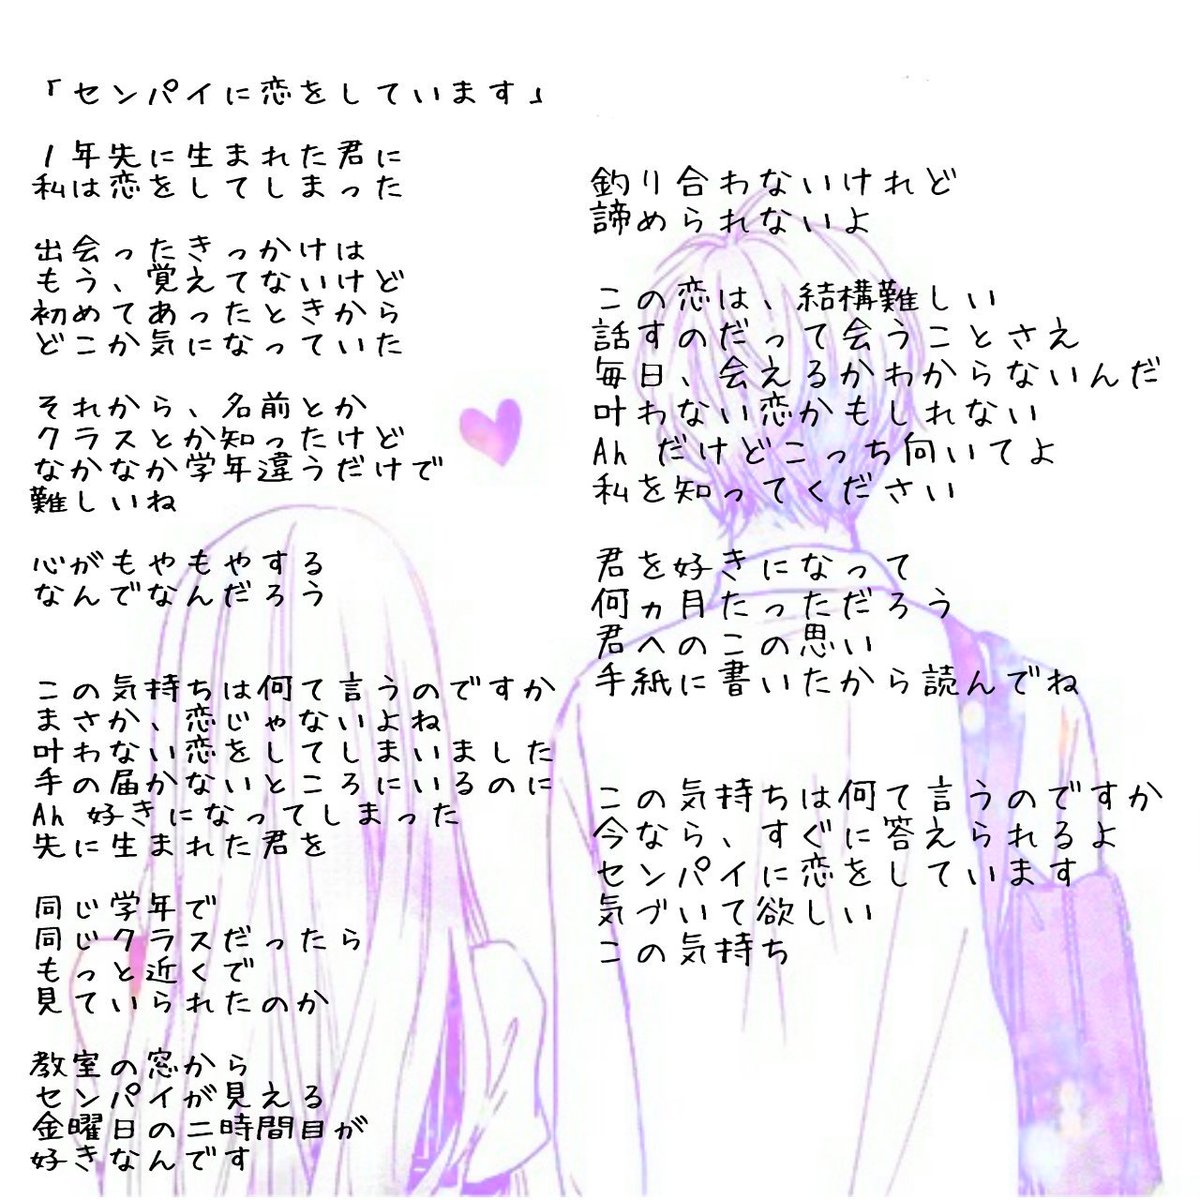 「センパイに恋をしています」
1年先に生まれた君に
私は恋をしてしまった
出会ったきっかけは
もう、覚えてないけど
初めてあったときから
どこか気になっていた
それから、名前とか
クラスとか知ったけど
なかなか学年違うだけで
難しいね
心がもやもやする
なんでなんだろう
この気持ちは何て言うのですか
まさか、恋じゃないよね
叶わない恋をしてしまいました
手の届かないところにいるのに
Ah 好きになってしまった
先に生まれた君を
同じ学年で
同じクラスだったら
もっと近くで
見ていられたのか
教室の窓から
センパイが見える
金曜日の二時間目が
好きなんです
釣り合わないけれど
諦められないよ
この恋は、結構難しい
話すのだって会うことさえ
毎日、会えるかわからないんだ
叶わない恋かもしれない
Ah だけどこっち向いてよ
私を知ってください
君を好きになって
何ヵ月たっただろう
君へのこの思い
手紙に書いたから読んでね
この気持ちは何て言うのですか
今なら、すぐに答えられるよ
センパイに恋をしています
気づいて欲しい
この気持ち